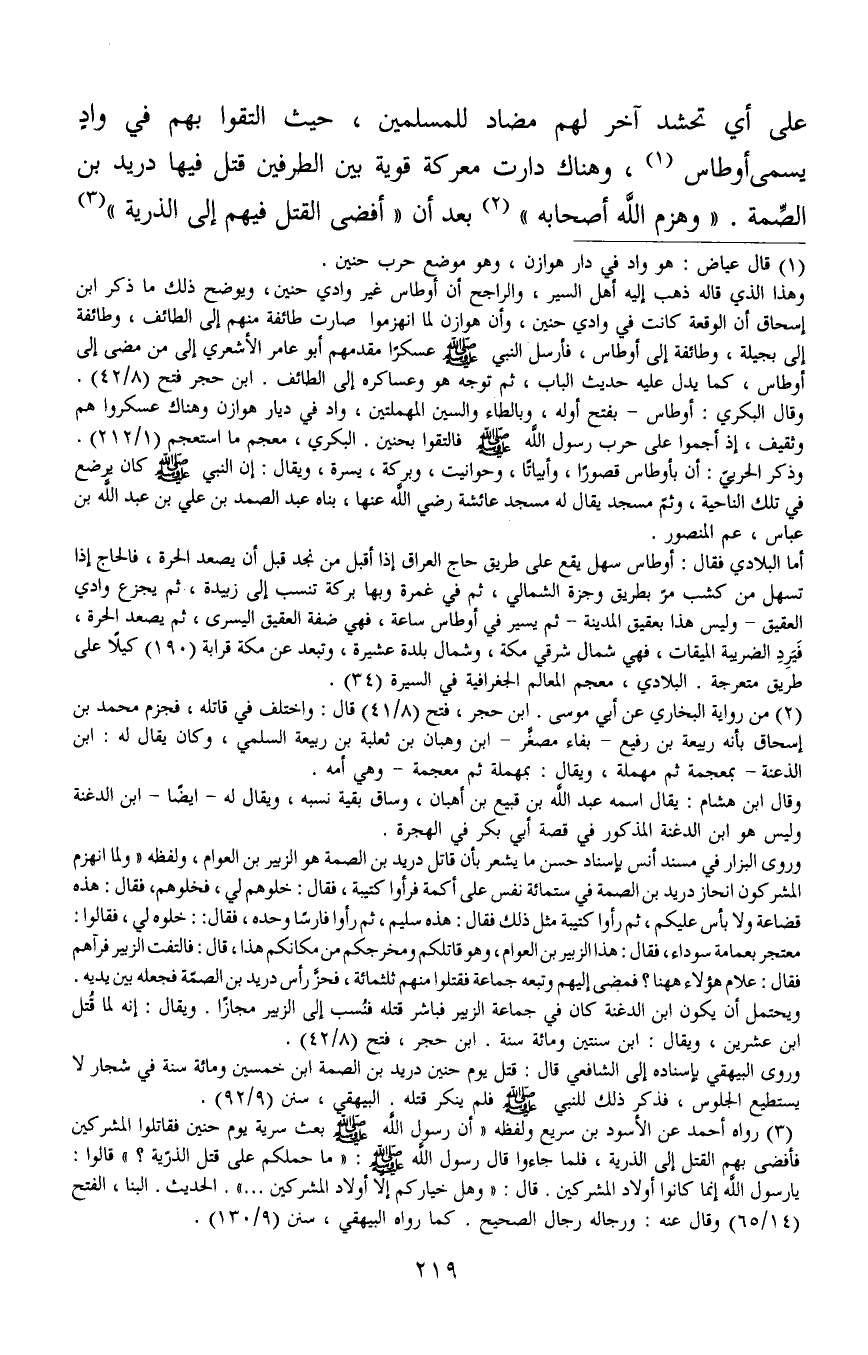 على أي تحشد آخر لهم مضاد للمسلمين ، حيث التقوا بهم في وادٍ
يسمى أوطاس (١) ، وهناك دارت معركة قوية بين الطرفين قتل فيها دريد بن
الصِّمة . « وهزم اللَّه أصحابه » (٢) بعد أن « أفضى القتل فيهم إلى الذرية »(٣)
(١) قال عياض : هو واد في دار هوازن ، وهو موضع حرب حنين .
وهذا الذي قاله ذهب إليه أهل السير ، والراجح أن أوطاس غير وادي حنين ، ويوضح ذلك ما ذكر ابن
إسحاق أن الوقعة كانت في وادي حنين ، وأن هوازن لما انهزموا صارت طائفة منهم إلى الطائف ، وطائفة
إلى بجيلة ، وطائفة إلى أوطاس ، فأرسل النبي ﷺ عسكرًا مقدمهم أبو عامر الأشعري إلى من مضى إلى
أوطاس ، كما يدل عليه حديث الباب ، ثم توجه هو وعساكره إلى الطائف . ابن حجر فتح (٤٢/٨) .
وقال البكري : أوطاس – بفتح أوله ، وبالطاء والسين المهملتين ، واد في ديار هوازن وهناك عسكروا هم
وثقيف ، إذ أجموا على حرب رسول اللَّه ﷺ فالتقوا بحنين . البكري ، معجم ما استعجم (٢١٢/١) .
وذكر الحربيّ : أن بأوطاس قصورًا ، وأبياتًا ، وحوانيت ، وبركة ، يسرة ، ويقال : إن النبي ﷺ كان يرضع
في تلك الناحية ، وثمّ مسجد يقال له مسجد عائشة رضي اللَّه عنها ، بناه عبد الصمد بن علي بن عبد اللَّه بن
عباس ، عم المنصور .
أما البلادي فقال : أوطاس سهل يقع على طريق حاج العراق إذا أقبل من نجد قبل أن يصعد الحرة ، فالحاج إذا
تسهل من كشب مرّ بطريق وجزة الشمالي ، ثم في غمرة وبها بركة تنسب إلى زبيدة ، ثم يجزع وادي
العقيق – وليس هذا بعقيق المدينة – ثم يسير في أوطاس ساعة ، فهي ضفة العقيق اليسرى ، ثم يصعد الحرة ،
فَيَرِدِ الضريبة الميقات ، فهي شمال شرقي مكة ، وشمال بلدة عشيرة ، وتبعد عن مكة قرابة (١٩٠) كيلًا على
طريق متعرجة . البلادي ، معجم المعالم الجغرافية في السيرة (٣٤) .
(٢) من رواية البخاري عن أبي موسى . ابن حجر ، فتح (٤١/٨) قال : واختلف في قاتله ، فجزم محمد بن
إسحاق بأنه ربيعة بن رفيع – بفاء مصغَّر – ابن وهبان بن ثعلبة بن ربيعة السلمي ، وكان يقال له : ابن
الذعنة – بمعجمة ثم مهملة ، ويقال : بمهملة ثم معجمة – وهي أمه .
وقال ابن هشام : يقال اسمه عبد اللَّه بن قبيع بن أهبان ، وساق بقية نسبه ، ويقال له – ايضًا – ابن الدغنة
وليس هو ابن الدغنة المذكور في قصة أبي بكر في الهجرة .
وروى البزار في مسند أنس بإسناد حسن ما يشعر بأن قاتل دريد بن الصمة هو الزبير بن العوام ، ولفظه « ولما انهزم
المشركون انحاز دريد بن الصمة في ستمائة نفس على أكمة فرأوا كتيبة ، فقال : خلوهم لي ، فخلوهم، فقال : هذه
قضاعة ولا بأس عليكم ، ثم رأوا كتيبة مثل ذلك فقال : هذه سليم ، ثم رأوا فارسًا وحده ، فقال: : خلوه لي ، فقالوا :
معتجر بعمامة سوداء، فقال : هذا الزبير بن العوام ، وهو قاتلكم ومخرجكم من مكانكم هذا ، قال : فالتفت الزبير فرآهم
فقال : علام هؤلاء ههنا ؟ فمضى إليهم وتبعه جماعة فقتلوا منهم ثلثمائة ، فحزَّ رأس دريد بن الصمّة فجعله بين يديه .
ويحتمل أن يكون ابن الدغنة كان في جماعة الزبير فباشر قتله فنُسب إلى الزبير مجازًا . ويقال : إنه لما قُتل
ابن عشرين ، ويقال : ابن سنتين ومائة سنة . ابن حجر ، فتح (٤٢/٨) .
وروى البيهقي بإسناده إلى الشافعي قال : قتل يوم حنين دريد بن الصمة ابن خمسين ومائة سنة في شجار لا
يستطيع الجلوس ، فذكر ذلك للنبي ﷺ فلم ينكر قتله . البيهقي ، سنن (٩٢/٩) .
(٣) رواه أحمد عن الأسود بن سريع ولفظه « أن رسول اللَّه ﷺ بعث سرية يوم حنين فقاتلوا المشركين
فأفضى بهم القتل إلى الذرية ، فلما جاءوا قال رسول اللَّه ﷺ : « ما حملكم على قتل الذرّية ؟ » قالوا :
يارسول اللَّه إنما كانوا أولاد المشركين . قال : « وهل خياركم إلَّا أولاد المشركين ...» . الحديث . البنا ، الفتح
(٦٥/١٤) وقال عنه : ورجاله رجال الصحيح . كما رواه البيهقي ، سنن (١٣٠/٩) .
٢١٩